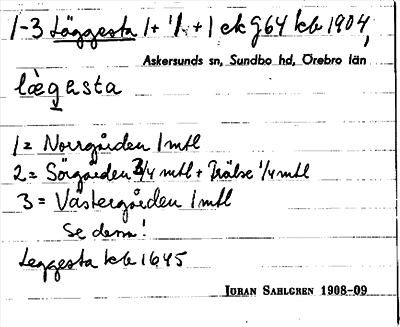 1-3 Läggesta 1 + 1/1 + 1 ek G64 kb 1904,
Askersunds sn, Sundbo hd, Örebro län
læ̀gesta
1 = Norrgården 1 mtl
2 = Sörgården 3/4 mtl + Frälse 1/4 mtl
3 = Västergården 1 mtl
Se dem!
Leggesta kb 1645
JÖRAN SAHLGREN 1908-09